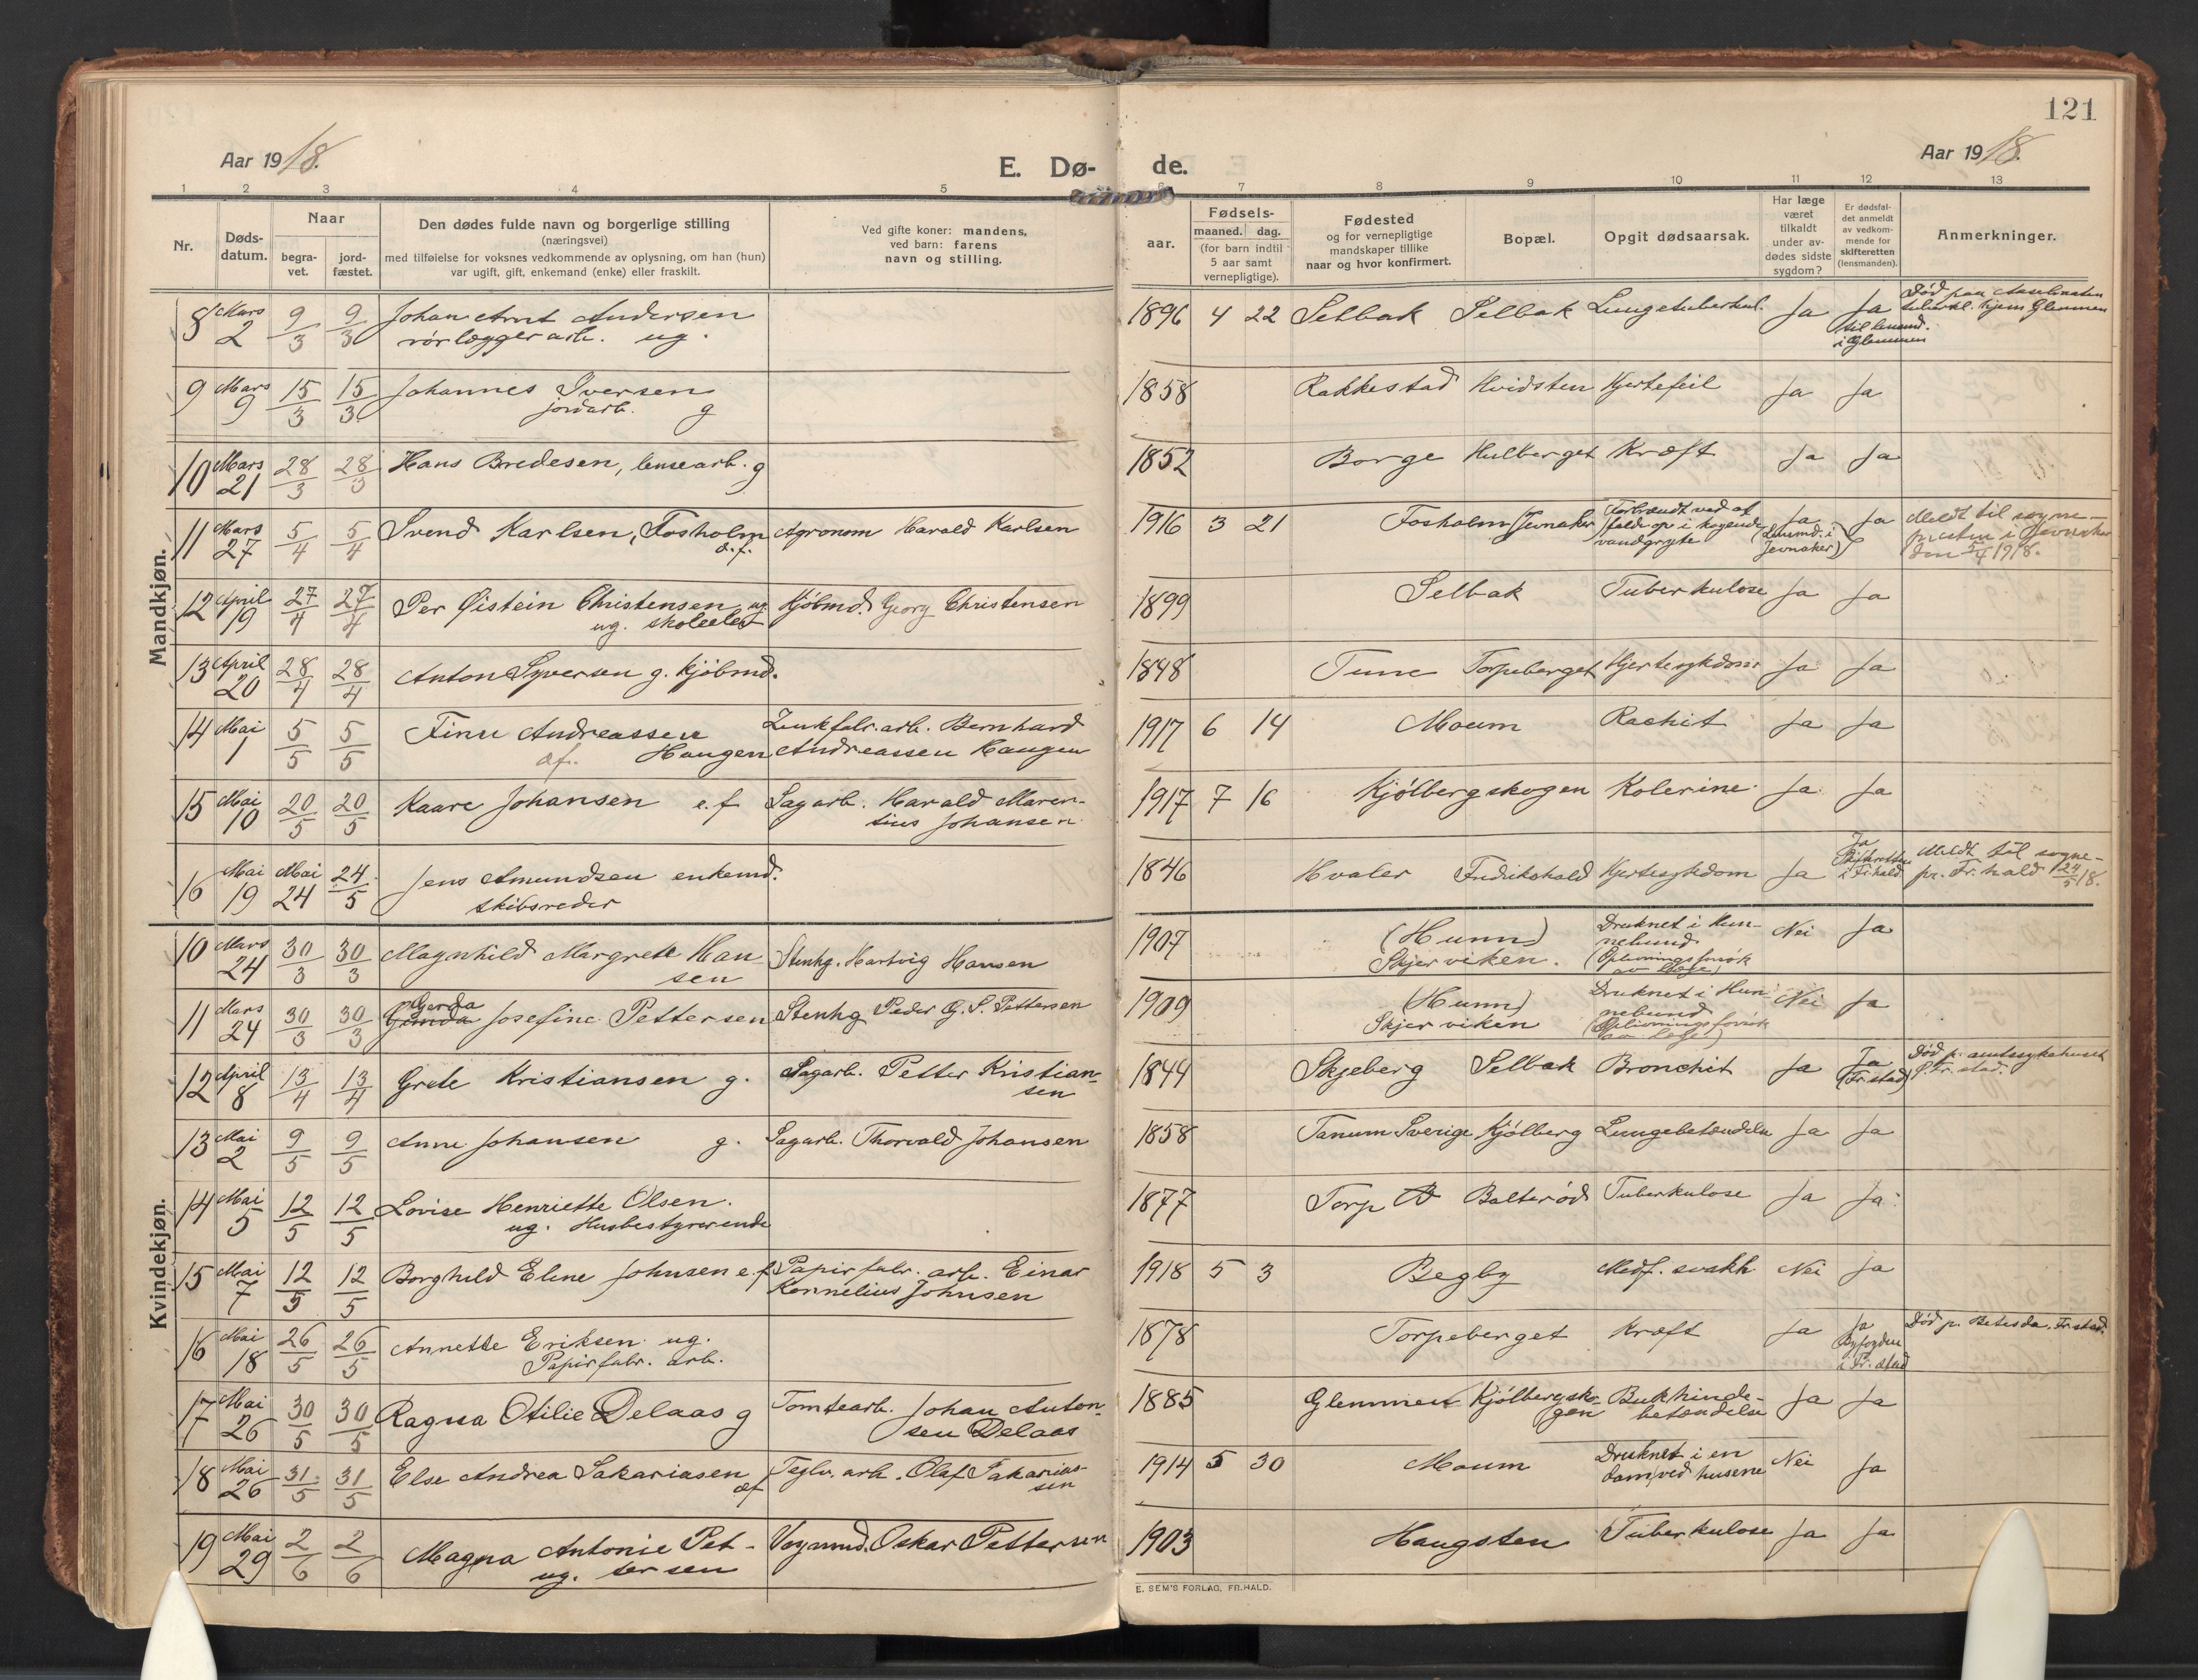 121
Aar 1918.
E. Dø- de.
Aar 1918.
1 2 3 4 5 7 8 9 10 11 12 13
Nr.
Døds-
datum.
Naar
begra-
vet.
jord-
fæstet.
Den dødes fulde navn og borgerlige stilling
(næringsvei)
med tilføielse for voksnes vedkommende av oplysning, om han (hun)
var ugift, gift, enkemand (enke) eller fraskilt.
Ved gifte koner: mandens,
ved barn: farens
navn og stilling.
Fødsels-
aar. maaned. dag.
(for barn indtil
5 aar samt
vernepligtige).
Fødested
og for vernepligtige
mandskaper tillike
naar og hvor konfirmert.
Bopæl.
Opgit dødsaarsak.
Har læge
været
tilkaldt
under av-
dødes sidste
sygdom?
Er dødsfal-
det anmeldt
av vedkom-
mende for
skifteretten
(lensmanden).
Anmerkninger.
Mandkjøn.
8 Mars 2 9/3 9/3 Johan Arnt Andersen
rörlæggerarb. ug.
1896 4 22 Selbak Selbak Lungetuberkul. Ja Ja
til lensmd.
i Glemmen
Død paa
tuberkl. hjem Glemmen
9 Mars 9 15/3 15/3 Johannes Iversen
jordarb. g
1858 Rakkestad Hvidsten Hjertefeil Ja Ja
10 Mars 21 28/3 28/3 Hans Bredesen, lensearb. g
1852 Borge Hulberget Kræft Ja Ja
11 Mars 27 5/4 5/4 Svend Karlsen, Fosholm
e.f.
Agronom Harald Karlsen
1916 3 21 Fosholm (Jevnaker)
Forbrændt ved at
falde op i kogende
vandgryte
Ja
(Lensmd. i
Jevnaker)
Ja
Meldt til sogne-
presten i Jevnaker
den 5/4 1918.
12 April 19 27/4 27/4 Per Øistein Christensen ug
ug. skoleelev
Kjöbmd. Georg Christensen
1899 Selbak Tuberkulose Ja Ja
13 April 20 28/4 28/4 Anton Syversen g. kjöbmd.
1848 Tune Torpeberget Hjertesykdom Ja Ja
14 Mai 1 5/5 5/5 Finn Andreassen
æf. Haugen
Zinkfabr. arb. Bernhard
Andreassen Haugen
1917 6 14 Moum Rachit Ja Ja
15 Mai 10 20/5 20/5 Kaare Johansen e.f
Sagarb. Harald Maren-
tius Johansen
1917 7 16 Kjölbergskogen Kolerine Ja Ja
16 Mai 19 Mai 24 24/5 Jens Amundsen enkemd.
skibsreder
1846 Hvaler Fredrikshald Hjertesykdom Ja
Ja
Skifteretten
i Fr.hald
Meldt til sogne-
pr. Fr.hald 24/5 18.
Kvindekjøn.
10 Mars 24 30/3 30/3 Magnhild Margrete Han
sen
Stenhg. Hartvig Hansen
1907 (Hunn)
Skjerviken.
Druknet i Hun-
nebund
(Oplivningsforsök
av læge)
Nei Ja
11 Mars 24 30/3 30/3 Gerda
Josefine Pettersen
Stenhg Peder G. S. Pettersen
1909 (Hunn)
Skjerviken
Druknet i Hun-
nebund
(Oplivningsforsök
av læge)
Nei Ja
12 April 8 13/4 13/4 Grete Kristiansen g.
Sagarb. Petter Kristian-
sen
1844 Skjeberg Selbak Bronchit Ja Ja
(Fr.stad)
Död p. amtssykehuset
p. Fr.stad.
13 Mai 2 9/5 9/5 Anne Johansen g.
Sagarb. Thorvald Johansen
1858 Tanum Sverige Kjölberg Lungebetændelse Ja Ja
14 Mai 5 12/5 12/5 Lovise Henriette Olsen.
ug. Husbestyrerende
1877 Torp B Balteröd Tuberkulose Ja Ja
15 Mai 7 12/5 12/5 Borghild Elene Johnsen e.f.
Papirfabr. arb. Einar
Kornelius Johnsen
1918 5 3 Begby Medf. svakh. Nei Ja
16 Mai 18 26/5 26/5 Annette Eriksen ug.
Papirfabr. arb.
1878 Torpeberget Kræft Ja
Ja
Byfogden
i Fr.stad
Död p. Betesda. Fr.stad.
17 Mai 26 30/5 30/5 Ragna Otilie Delaas g
Tomtearb. Johan Anton-
sen Delaas
1885 Glemmen Kjölbergsko-
gen
Bukhinde-
betændelse
Ja Ja
18 Mai 26 31/5 31/5 Else Andrea Sakariasen
æf
Teglv. arb. Olaf Sakarias-
sen
1914 5 30 Moum
Druknet i en
dam ved husene
Nei Ja
19 Mai 29 2/6 2/6 Magna Antonie Pet-
ug. tersen
Vognmd. Oskar Pettersen
1903 Haugsten Tuberkulose Ja Ja
E. SEM'S FORLAG, FR.HALD.